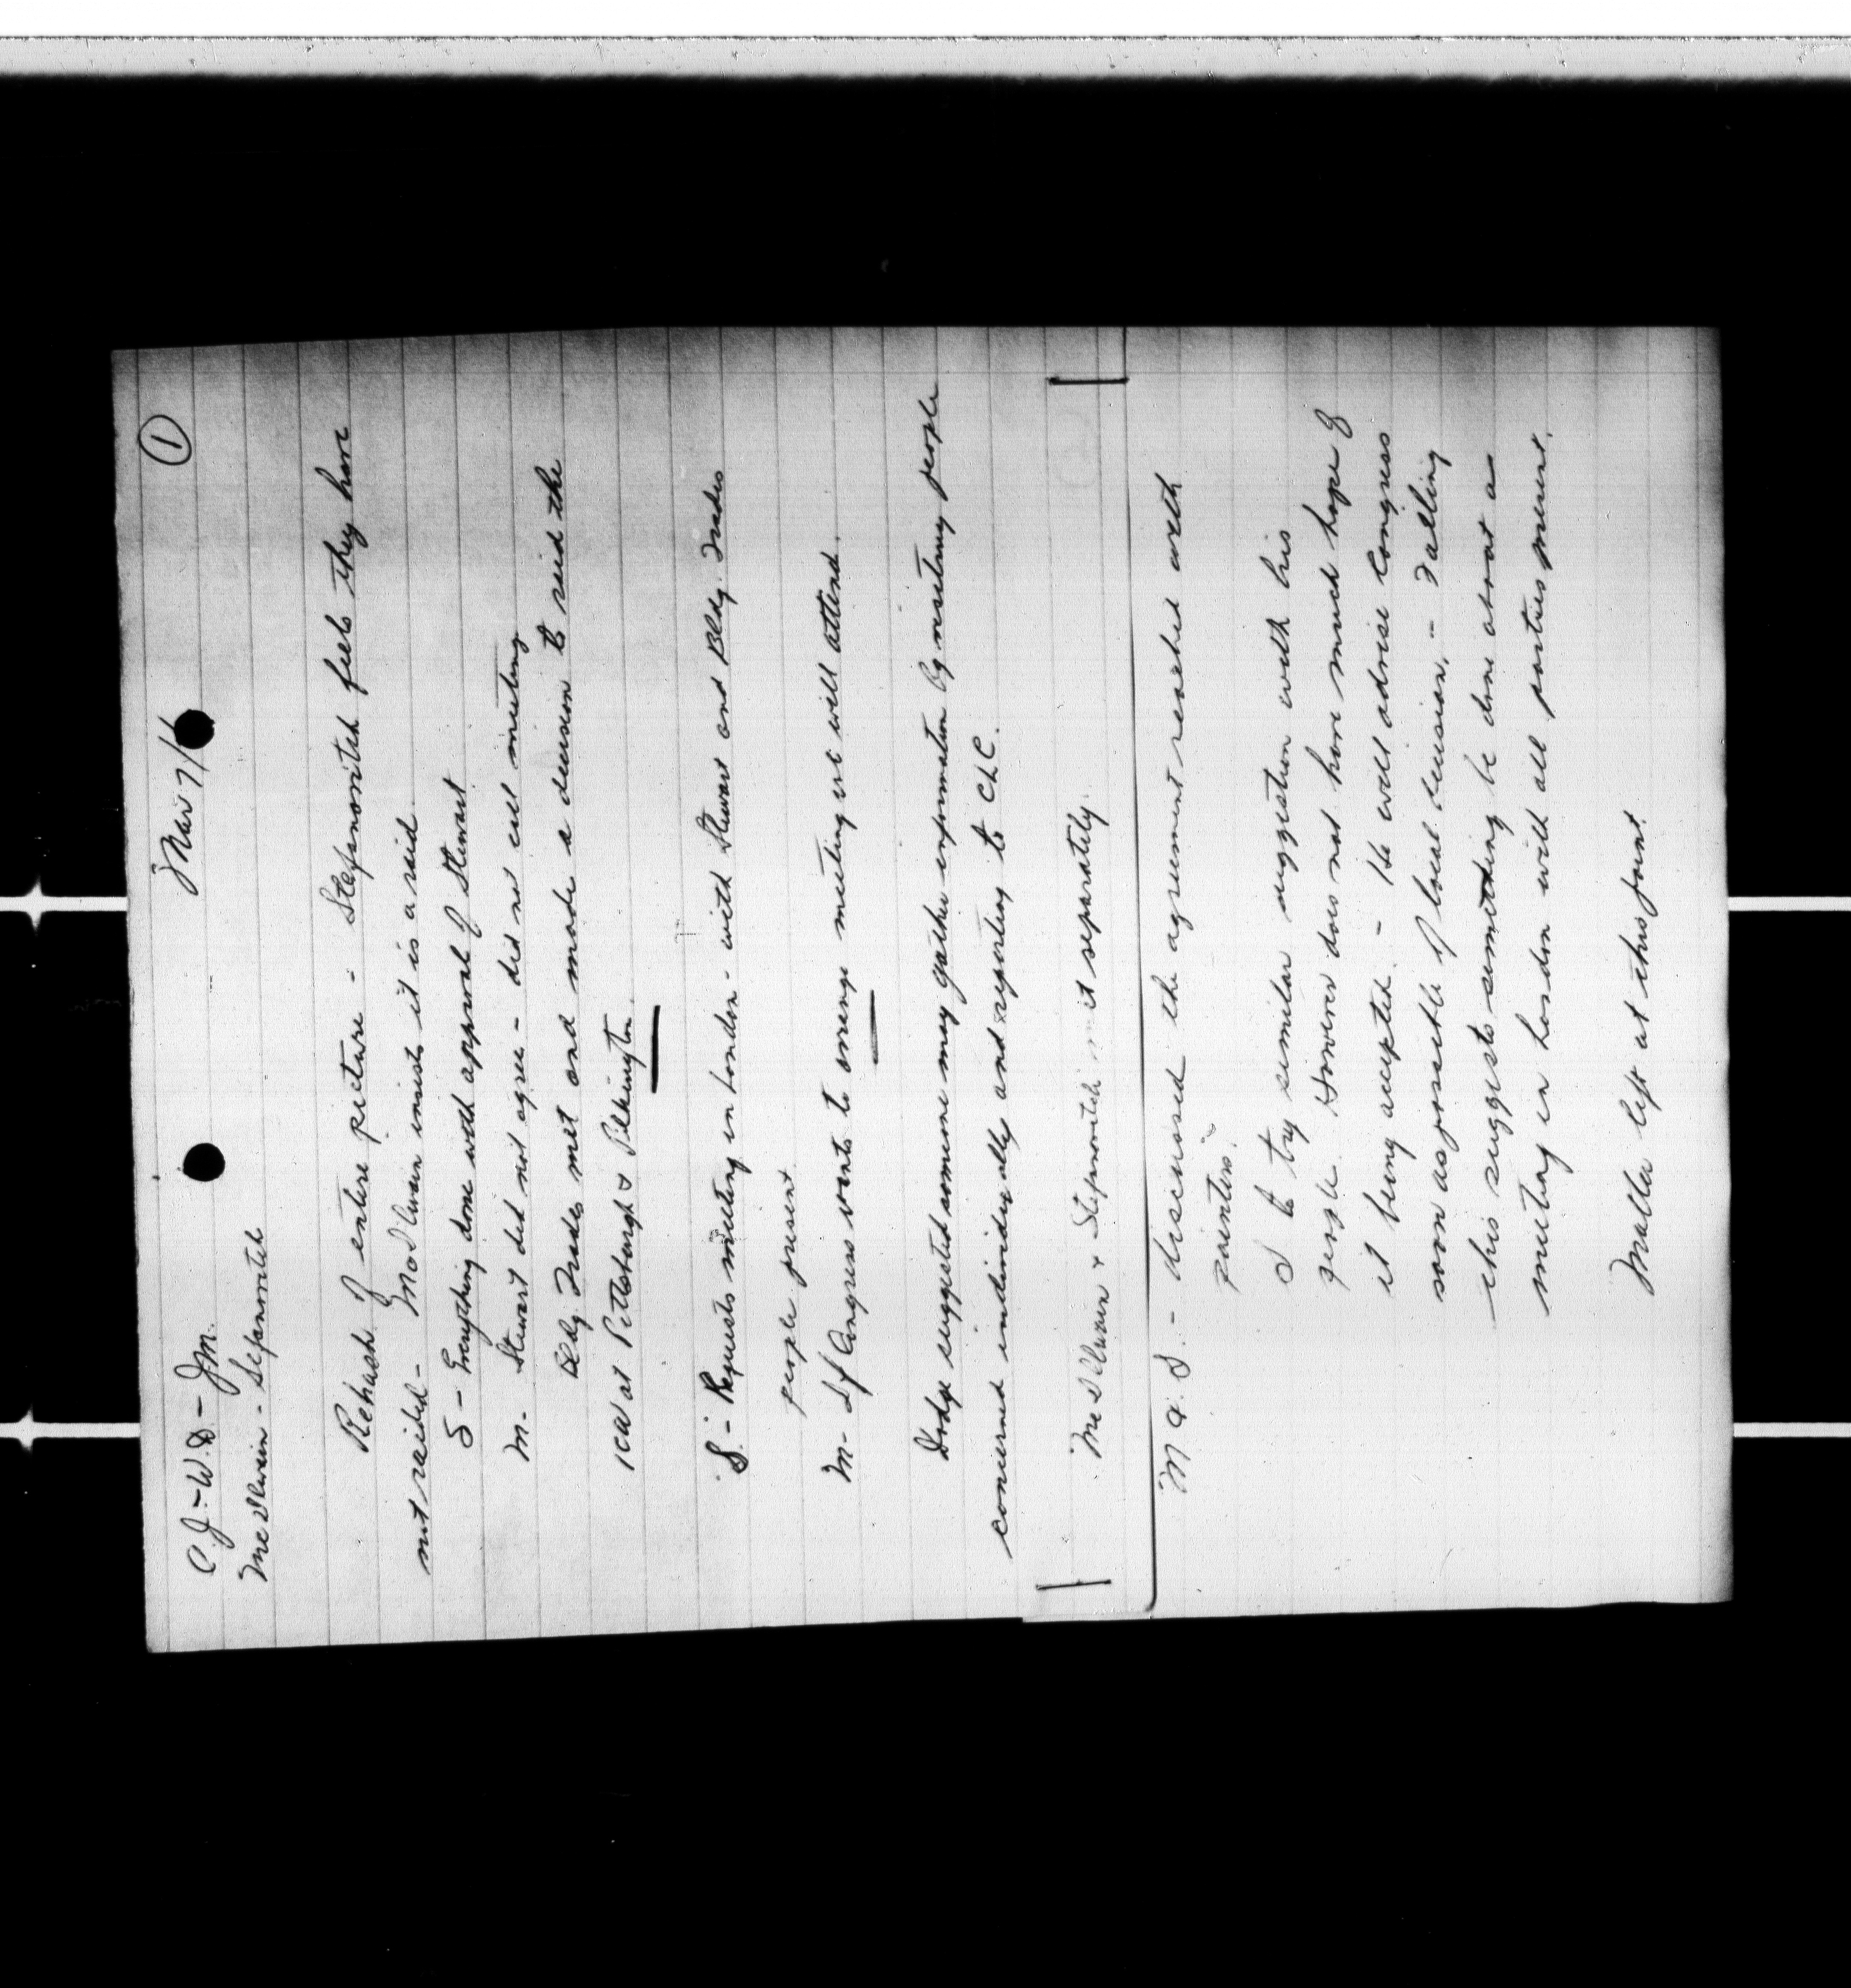 ①
C.J. – W.D. – J.M. Mar 7/
McIlwain - Stefanovitch
Rehash of entire picture - Stefanovitch feels they have
not raided - McIlwain insists it is a raid.
S – Everything done with approval of Stewart
M. Stewart did not agree – did not call meeting
Bldg. Trades met and made a decision to raid the
ICW at Pittsburgh & Pilkington.
S. - Requests meeting in London - with Stewart and Bldg. Trades
people present.
M - If Congress wants to arrange meeting we will attend.
Dodge suggested someone may gather information by visiting people
concerned individually and reporting to CLC.
McIlwain & Stefanovitch met separately.
M & S. - discussed the agreement reached with
painters.
S to try similar suggestion with his
people. However does not have much hope of
it being accepted. - He will advise Congress
soon as possible of local decision. - Failing
this suggests something be done about a
meeting in London with all parties present.
Matter left at this point.